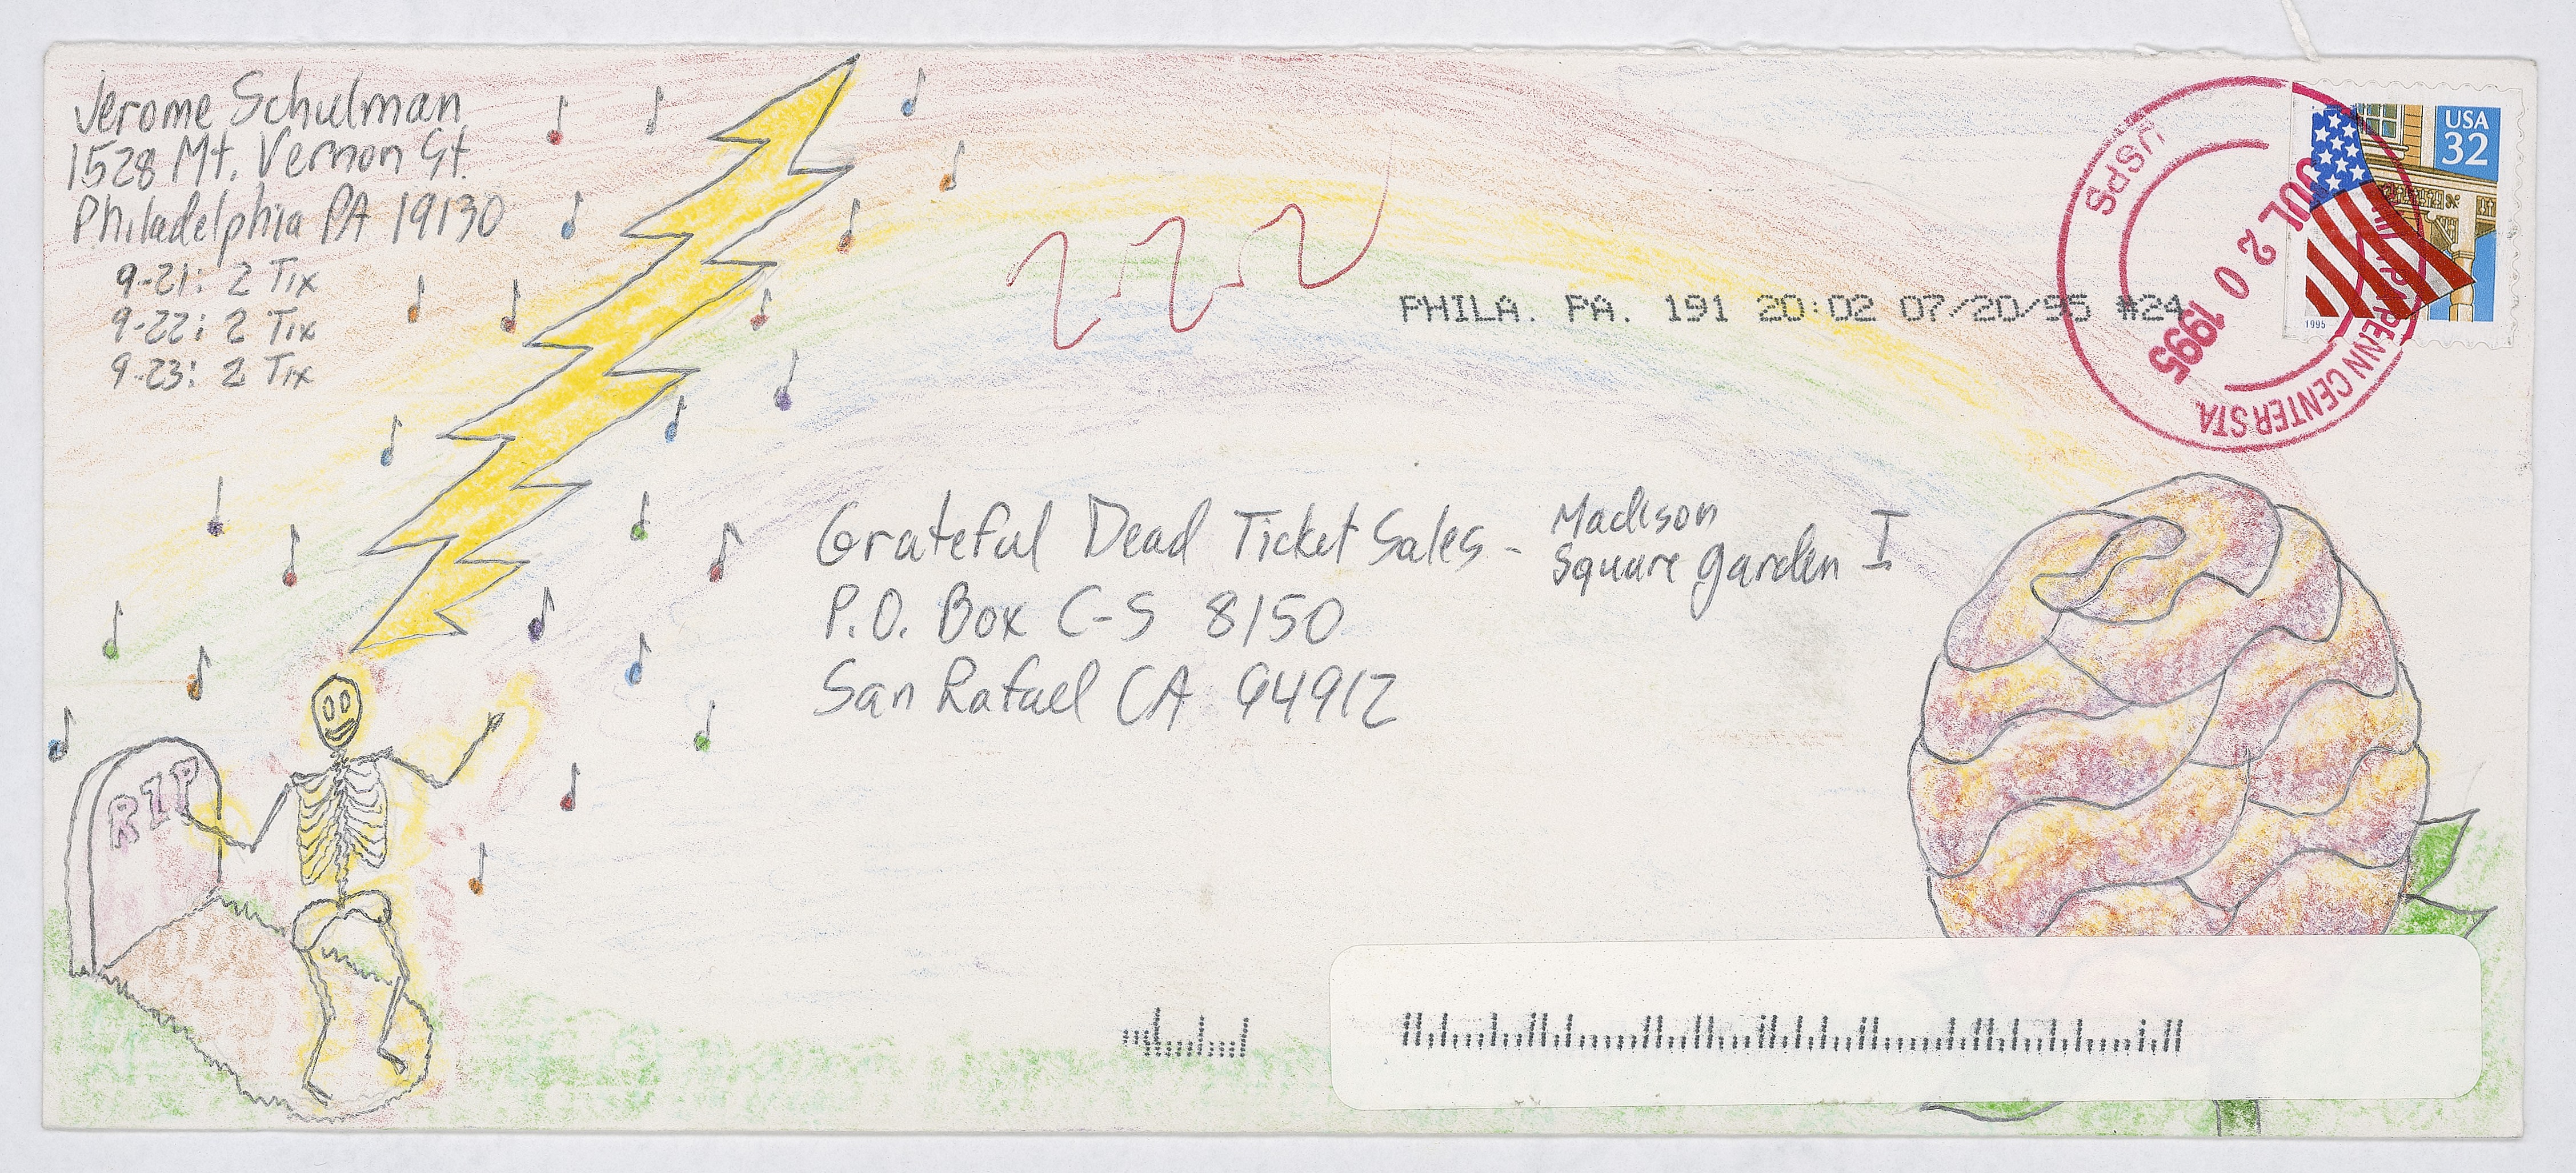 Jerome Schulman
1528 Mt. Vernon St.
Philadelphia PA 19130
9-21: 2 Tix
9-22: 2 Tix
9-23: 2 Tix
USA
32
1995
USPS
JUL 20 1995
PENN CENTER STA
PHILA. PA. 191 20:02 07/20/95 #24
Grateful Dead Ticket Sales - Madison
Square Garden I
P.O. Box C-S 8150
San Rafael CA 94912
RIP